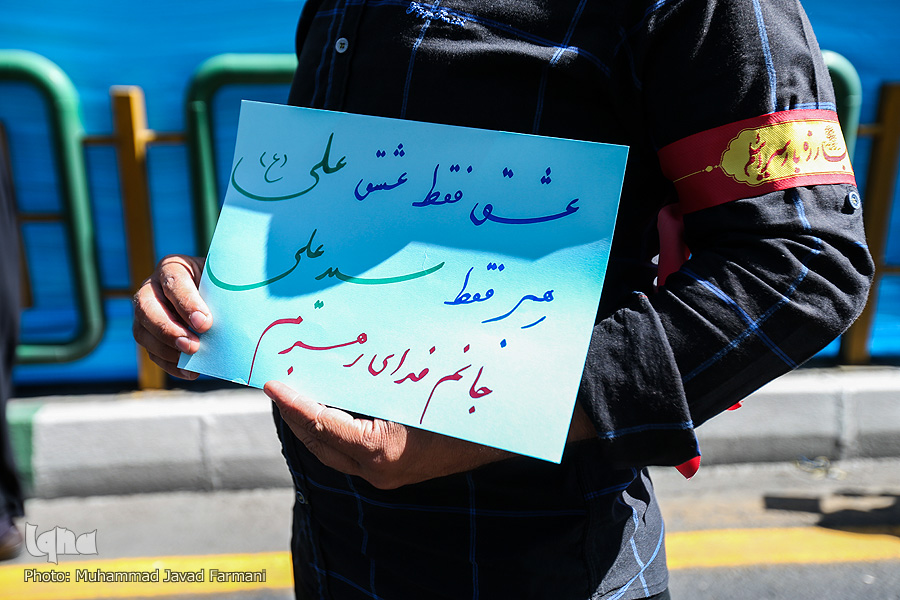 عشق فقط عشق علی (ع)
رهبر فقط سید علی
جانم فدای رهبرم
iqna
Photo: Muhammad Javad Farmani